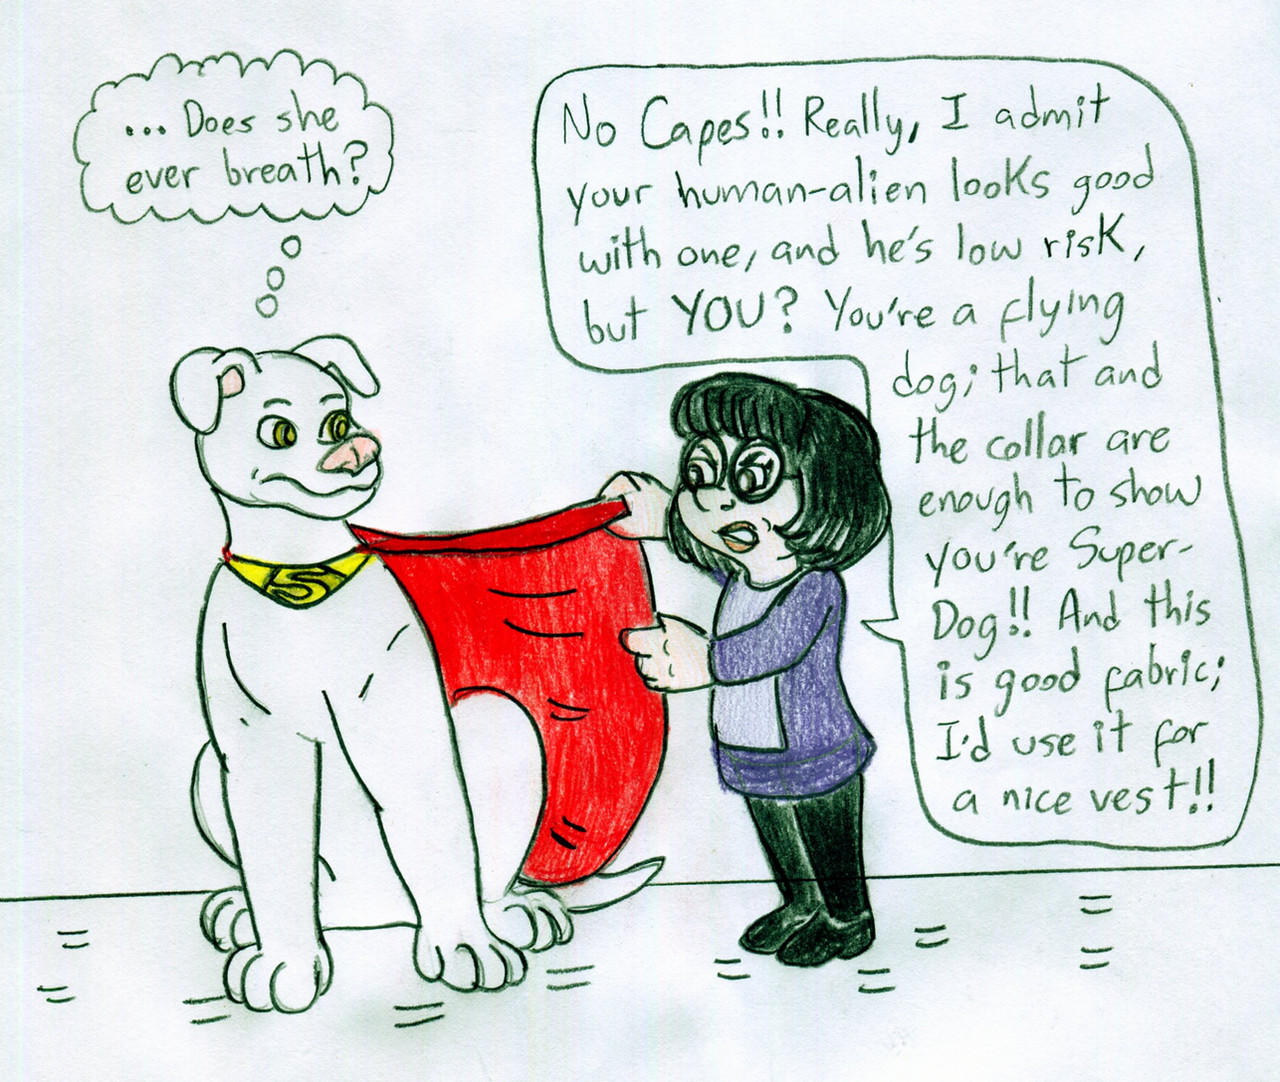 ... Does she
ever breath?
No Capes!! Really, I admit
your human-alien looks good
with one, and he's low risk,
but YOU? You're a flying
dog; that and
the collar are
enough to show
you're Super-
Dog!! And this
is good fabric;
I'd use it for
a nice vest!!
S